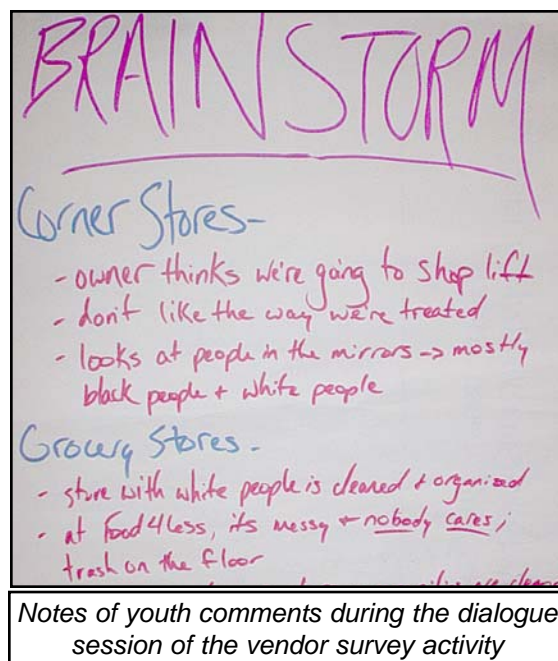 BRAINSTORM
Corner Stores-
- owner thinks we're going to shop lift
- don't like the way we're treated
- looks at people in the mirrors -> mostly
black people + white people
Grocery Stores -
- store with white people is cleaned + organized
- at Food4Less, its messy + nobody cares;
trash on the floor
Notes of youth comments during the dialogue
session of the vendor survey activity